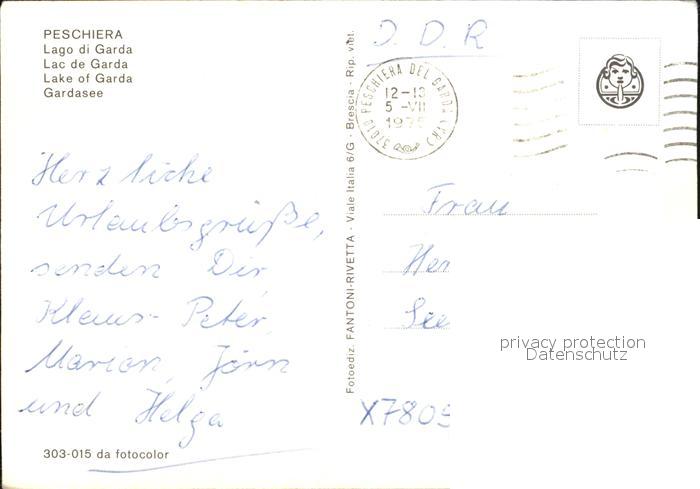 PESCHIERA
Lago di Garda
Lac de Garda
Lake of Garda
Gardasee
Herzliche
Urlaubsgrüße,
senden Dir,
Klaus-Peter,
Marion, Jörn
und Helga
303-015 da fotocolor
Fotoediz. FANTONI-RIVETTA - Viale Italia 6/G - Brescia - Rip. viet.
D. D. R
37010 PESCHIERA DEL GARDA (VR)
12-13
5 -VII
Frau
Her
See
X7805
privacy protection
Datenschutz